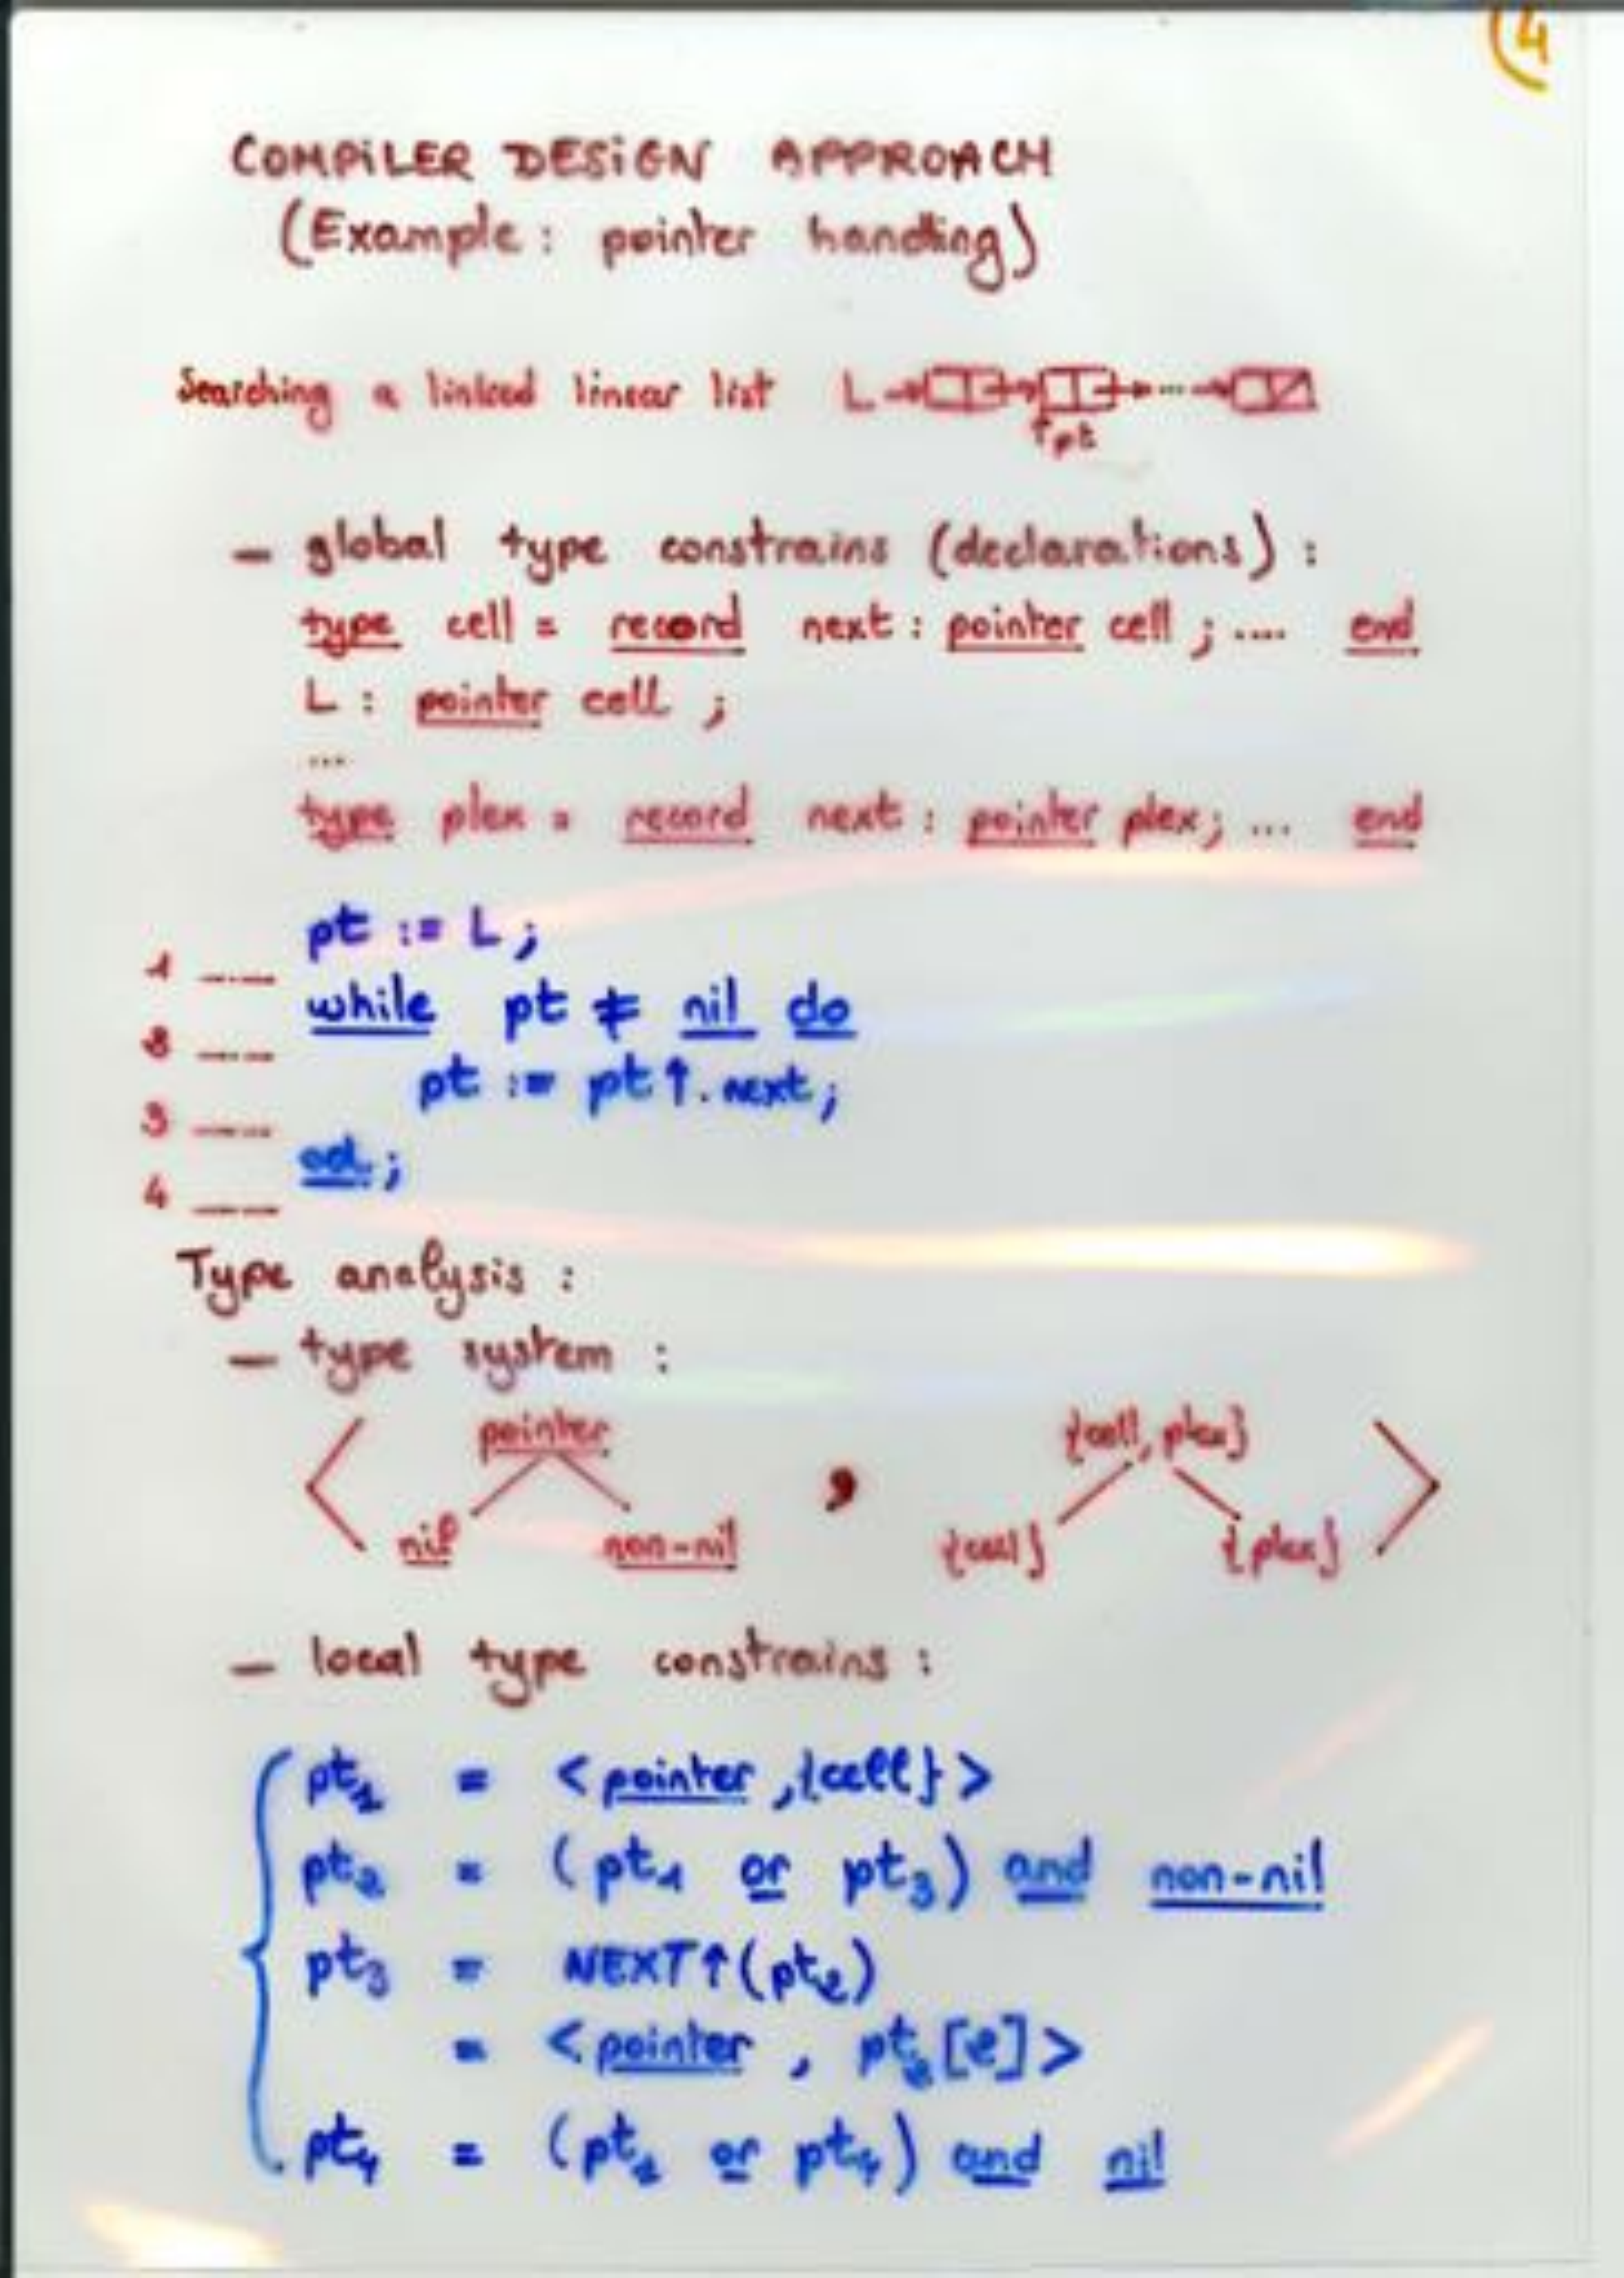 4
COMPILER DESIGN APPROACH
(Example: pointer handling)
Searching a linked linear list L
↑pt
— global type constrains (declarations) :
type cell = record next : pointer cell ; .... end
L : pointer cell ;
...
type plex = record next : pointer plex; ... end
pt := L ;
1 ----
while pt ≠ nil do
2 ----
pt := pt↑.next ;
3 ----
od ;
4 ----
Type analysis :
— type system :
pointer {cell, plex}
< nil non-nil , {cell} {plex} >
— local type constrains :
pt1 = < pointer , {cell} >
pt2 = ( pt1 or pt3 ) and non-nil
pt3 = NEXT↑(pt2)
= < pointer , pt2 [2] >
pt4 = ( pt1 or pt4 ) and nil